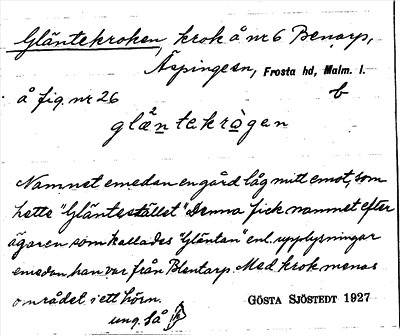 Gläntekroken, krok å nr 6 Benarp,
Äspingeån, Frosta hd, Malm. l.
å fig. nr 26
b
glæ²ntekrògen
Namnet emedan en gård låg mitt emot, som
hette "Gläntestället" Denna fick namnet efter
ägaren som kallades "Gläntan" enl. upplysningar
emedan han var från Blentarp. Med krok menas
området i ett hörn.
ung. så
GÖSTA SJÖSTEDT 1927